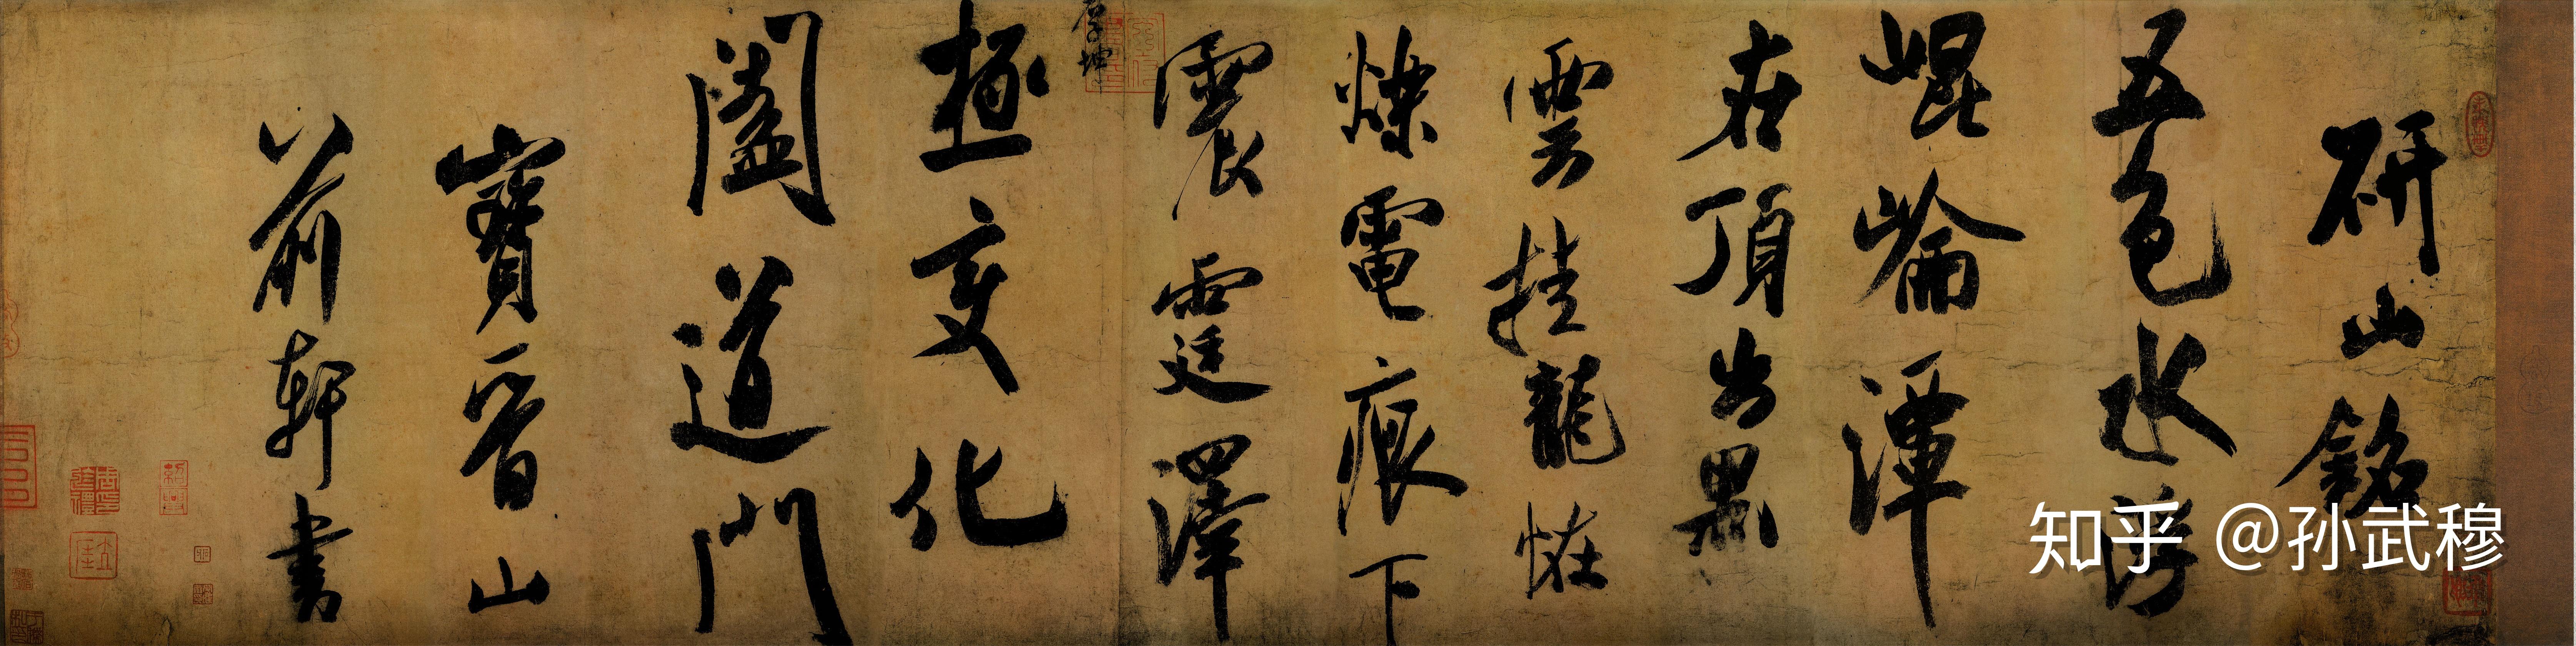 研山銘
五色水浮
崐崘潭
在頂出黑
雲挂龍怪
爍電痕下
震霆澤
厚坤
極變化
闔道門
寶晉山
前軒書
知乎 @孙武穆